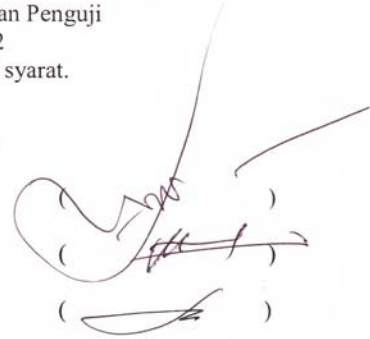 an Penguji
2
syarat.
( )
( )
( )